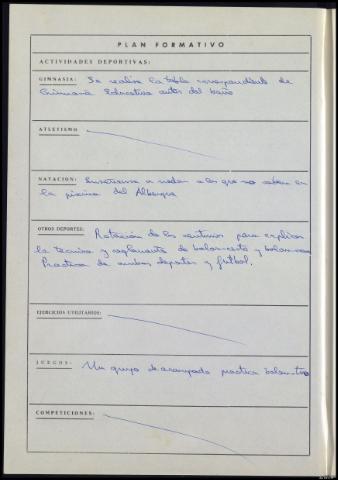 PLAN FORMATIVO
ACTIVIDADES DEPORTIVAS:
GIMNASIA: Se realiza la tabla correspondiente de
Gimnasia Educativa antes del baño
ATLETISMO
NATACION: Enseñanza a nadar a los que no saben en
la piscina del Albergue
OTROS DEPORTES: Rotación de las centurias para explicar
la técnica y reglamento de balon-cesto y balon-mano
Practica de ambos deportes y futbol.
EJERCICIOS UTILITARIOS:
JUEGOS: Un grupo de acampado practica balon-tiro
COMPETICIONES: